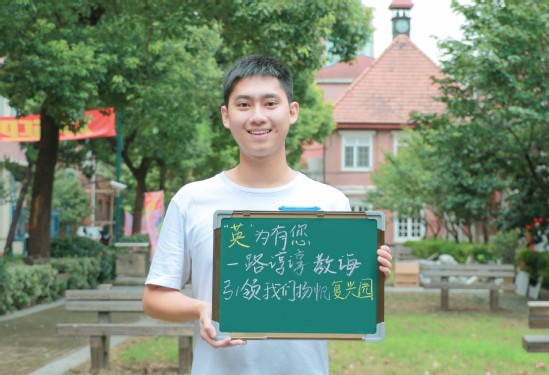 “英”为有您
一路谆谆教诲
引领我们扬帆复兴园